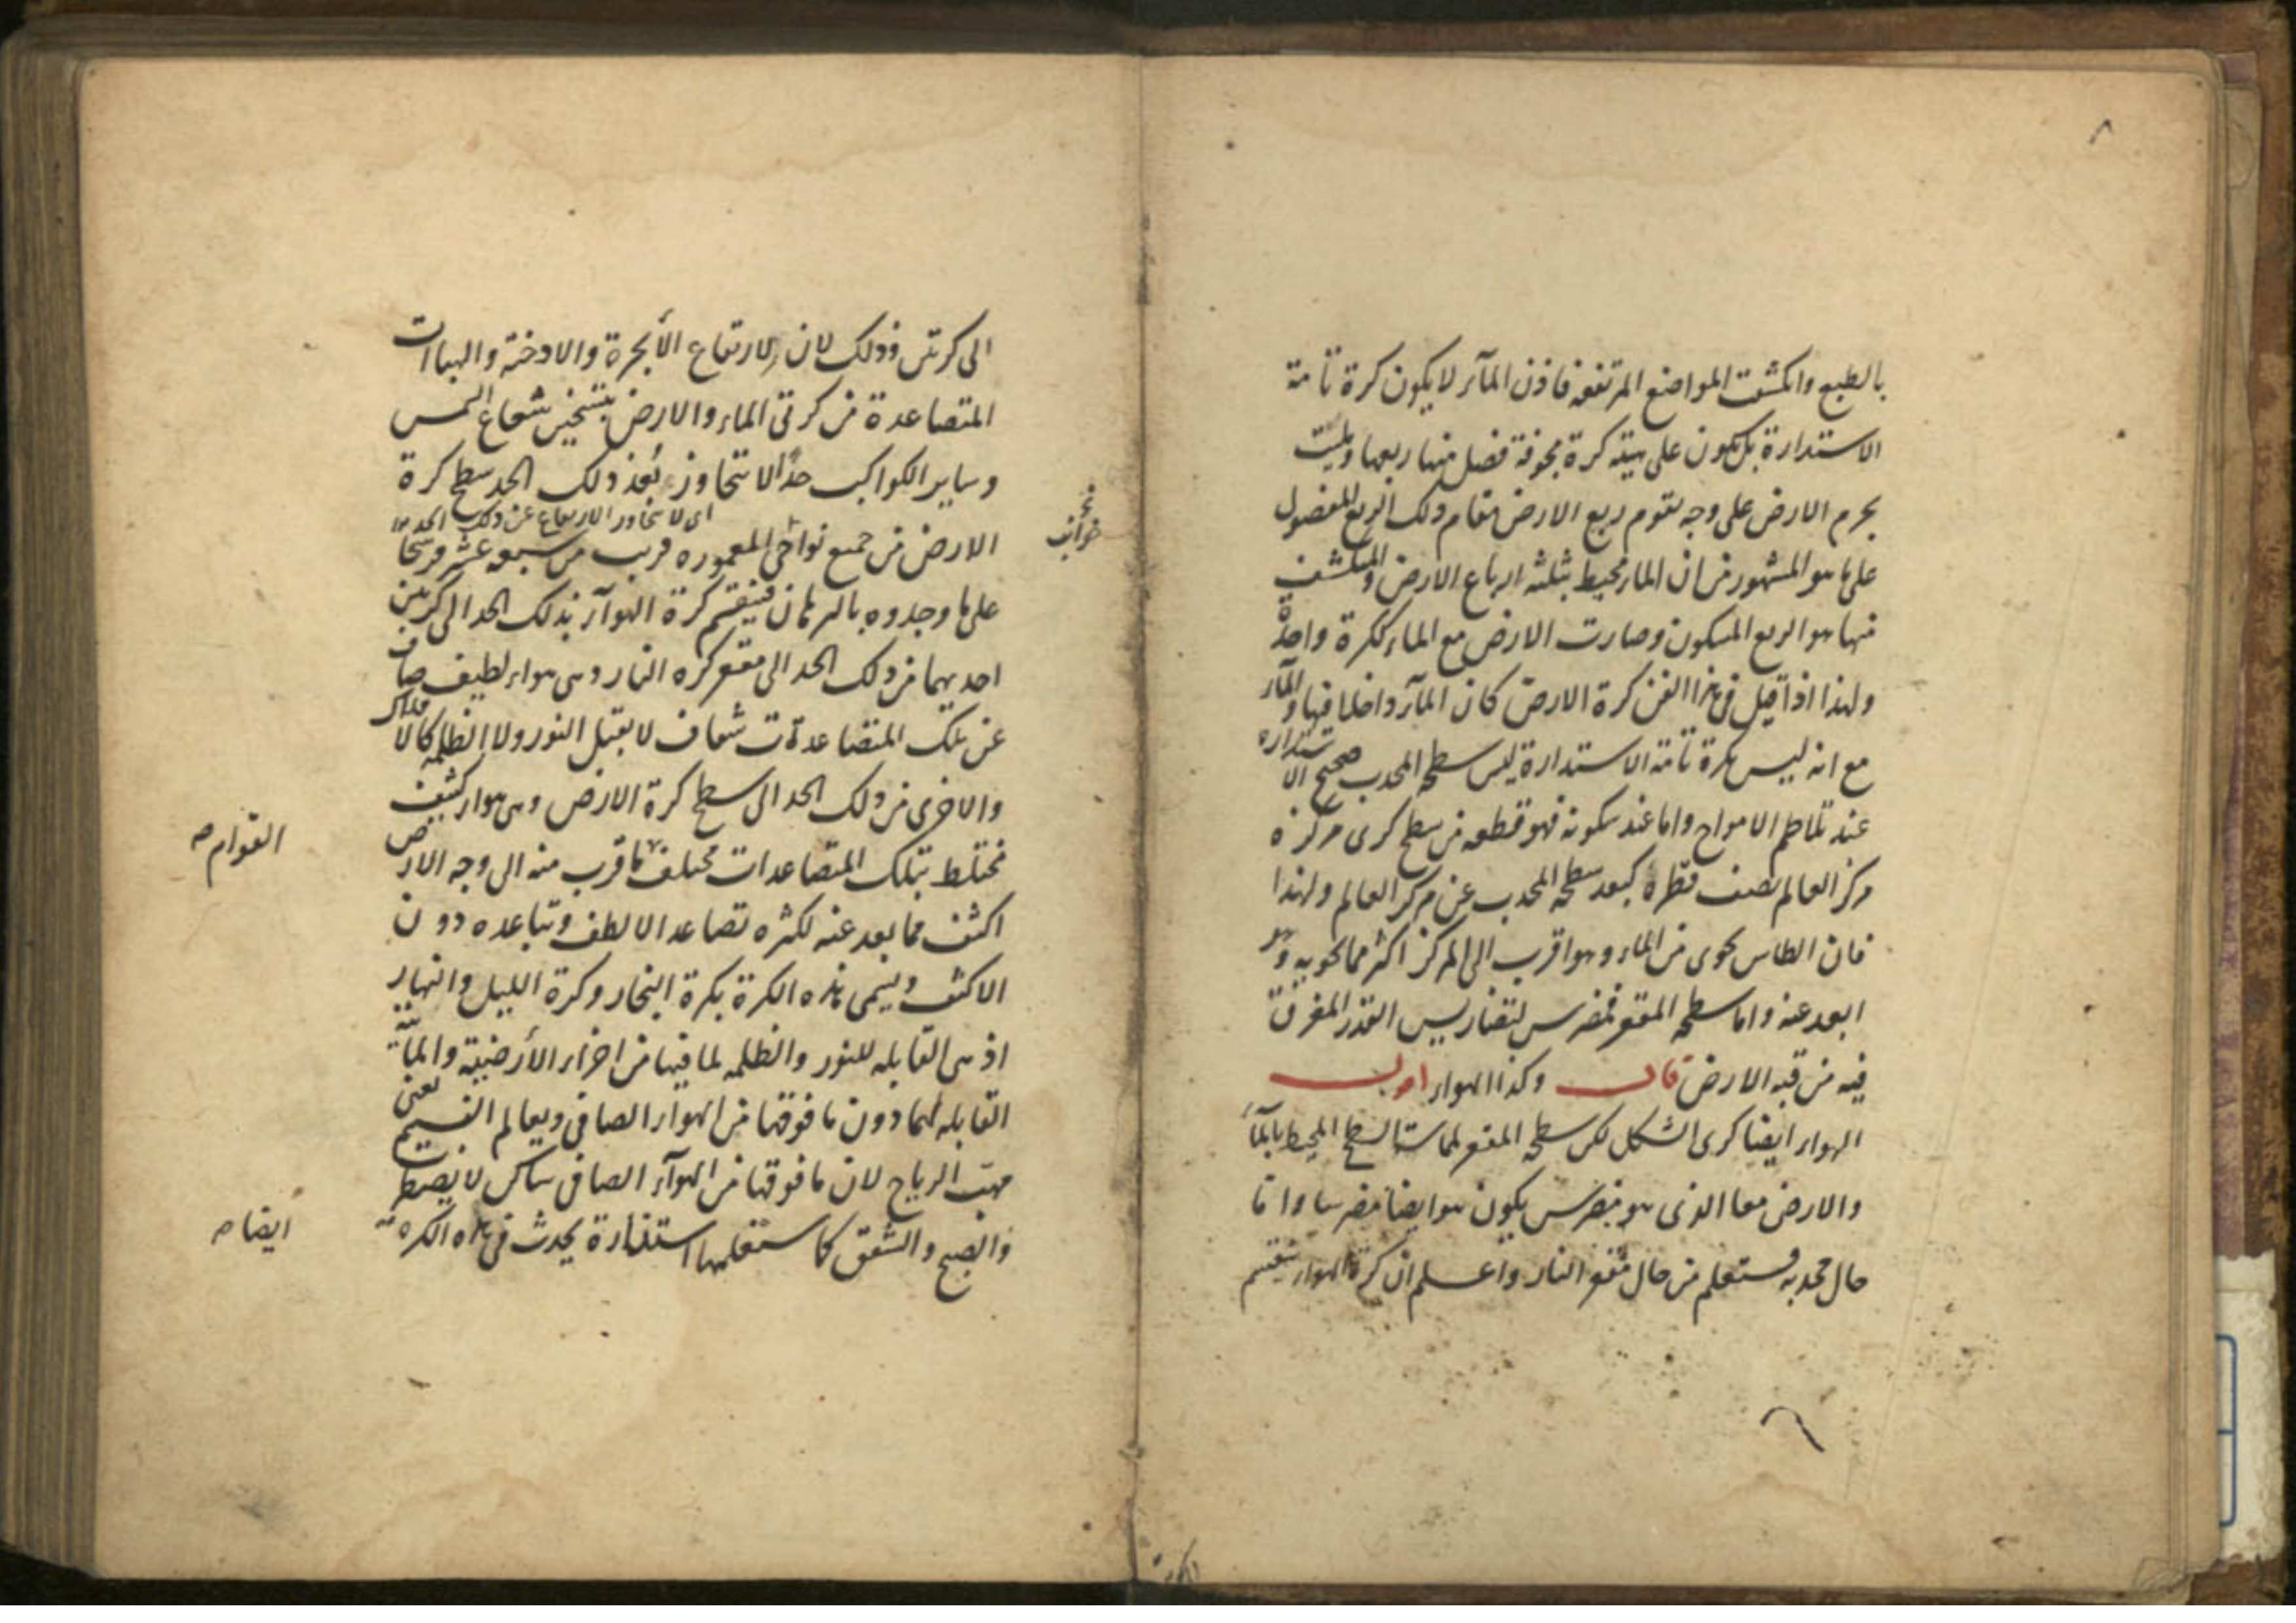 ٨
بالطبع وانكشفت المواضع المرتفعة فاذن المآء لا يكون كرة تامة
الاستدارة بل يكون على هيئة كرة مجوفة فصل منها ربعها وملئت
بجرم الارض على وجه يقوم ربع الارض مقام ذلك الربع المفصول
على ما هو المشهور من ان الماء محيط بثلثة ارباع الارض والمنكشف
منها هو الربع المسكون وصارت الارض مع الماء ككرة واحدة
ولهذا اذا قيل فى هذا الفن كرة الارض كان المآء داخلا فيها والمآء
مع انه ليس بكرة تامة الاستدارة ليس سطحه المحدب صحيح الاستدارة
عند تلاطم الامواج واما عند سكونه فهو قطعه من سطح كرى مركزه
مركز العالم نصف قطره كبعد سطحه المحدب عن مركز العالم ولهذا
فان الطاس يحوى من الماء وهو اقرب الى المركز اكثر مما يحويه وهو
ابعد عنه واما سطحه المقعر فمضرس لتضاريس القدر المغرق
فيه من قبه الارض قال وكذا الهواء اقول
الهواء ايضا كرى الشكل لكن سطحه المقعر لمماسته السطح المحيط بالمآء
والارض معا الذى هو مضرس يكون هو ايضا مضرسا واما
حال محدبه فستعلم من حال مقعر النار واعلم ان كرة الهواء ينقسم
الى كرتين وذلك لان لارتفاع الأبخرة والادخنة والهباآت
المتصاعدة من كرتى الماء والارض بتسخين شعاع الشمس
وساير الكواكب حدا لا تتجاوزه بعد ذلك الحد سطح كرة
اى لا يتجاوز الارتفاع عن ذلك الحد
الارض من جميع نواحى المعموره قريب من سبعه عشر فرسخا
على ما وجدوه بالبرهان فينقسم كرة الهوآء بذلك الحد الى كرتين
احديهما من ذلك الحد الى مقعر كره النار وهى هواء لطيف صاف
عن تلك المتصاعدات شفاف لا يقبل النور ولا الظلمه كالافلاك
والاخرى من ذلك الحد الى سطح كرة الارض وهى هواء كثيف
القوام صح
مختلط بتلك المتصاعدات مختلف ما قرب منه الى وجه الارض
اكثف مما بعد عنه لكثره تصاعد الالطف وتباعده دون
الاكثف ويسمى هذه الكرة بكرة البخار وكرة الليل والنهار
اذ هى القابله للنور والظلمه لما فيها من اجزاء الأرضية والمائية
القابله لهما دون ما فوقها من الهواء الصافى وبعالم النسيم يعنى
مهب الرياح لان ما فوقها من الهوآء الصافى ساكن لا يضطرب
ايضا صح
والصبح والشفق كما ستعلمها استنارة يحدث فى هذه الكره